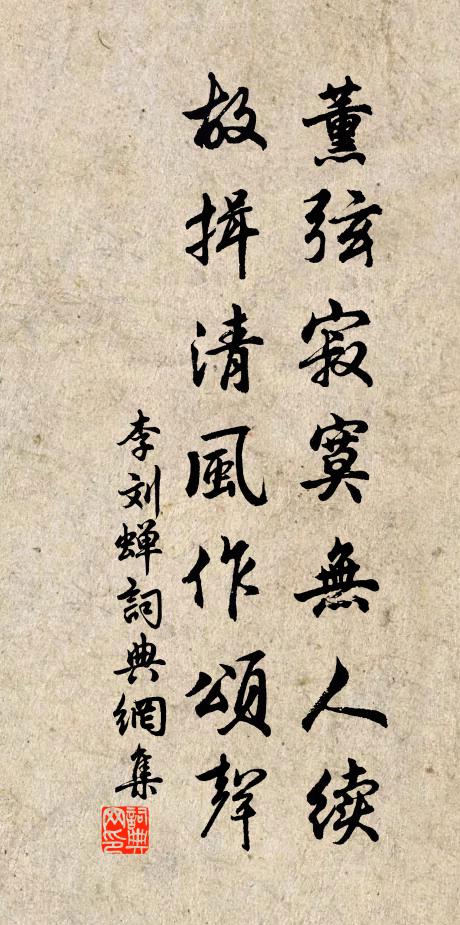 薰弦寂寞無人续
故揖清風作頌聲
李刘蝉詞典網集
詞典网印